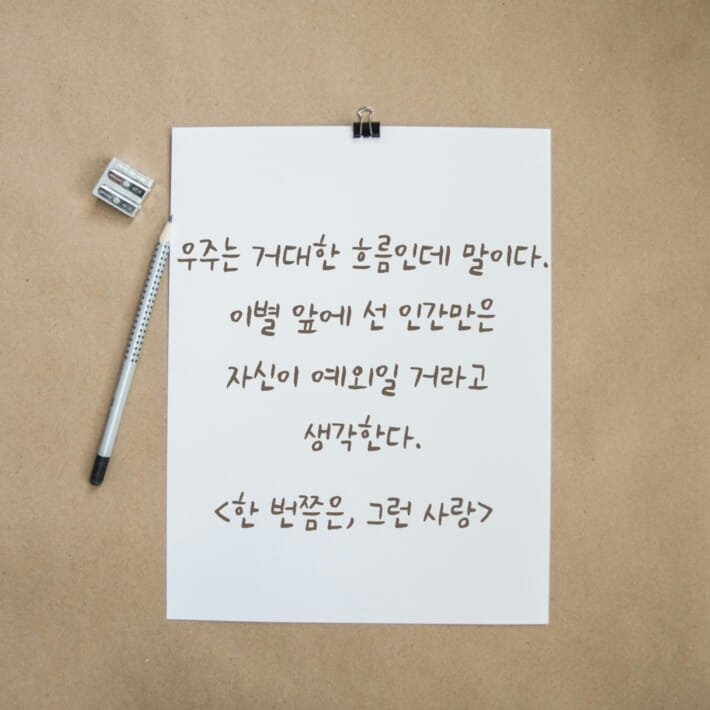 우주는 거대한 흐름인데 말이다.
이별 앞에 선 인간만은
자신이 예외일 거라고
생각한다.
<한 번쯤은, 그런 사랑>